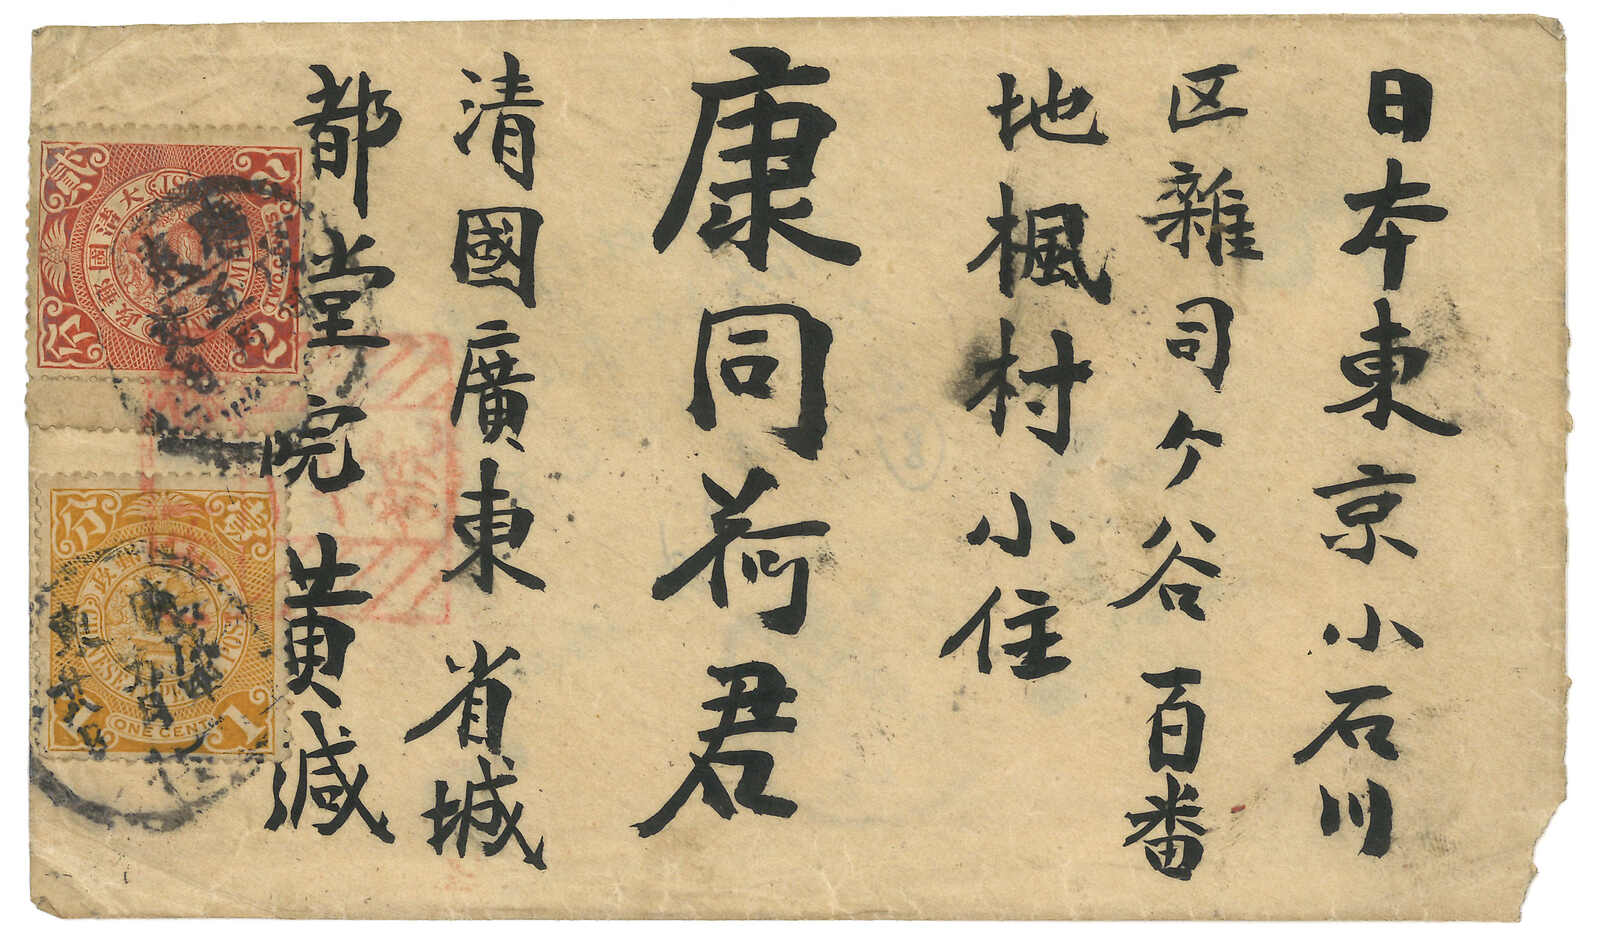 日本東京小石川
区雜司ケ谷百番
地楓村小住
康同荷君
清國廣東省城
都堂完黄減
大清國郵政
貳分
2
TWO CENTS
2
IMPERIAL
POST
大清國郵政
壹分
1
ONE CENT
1
IMPERIAL
POST